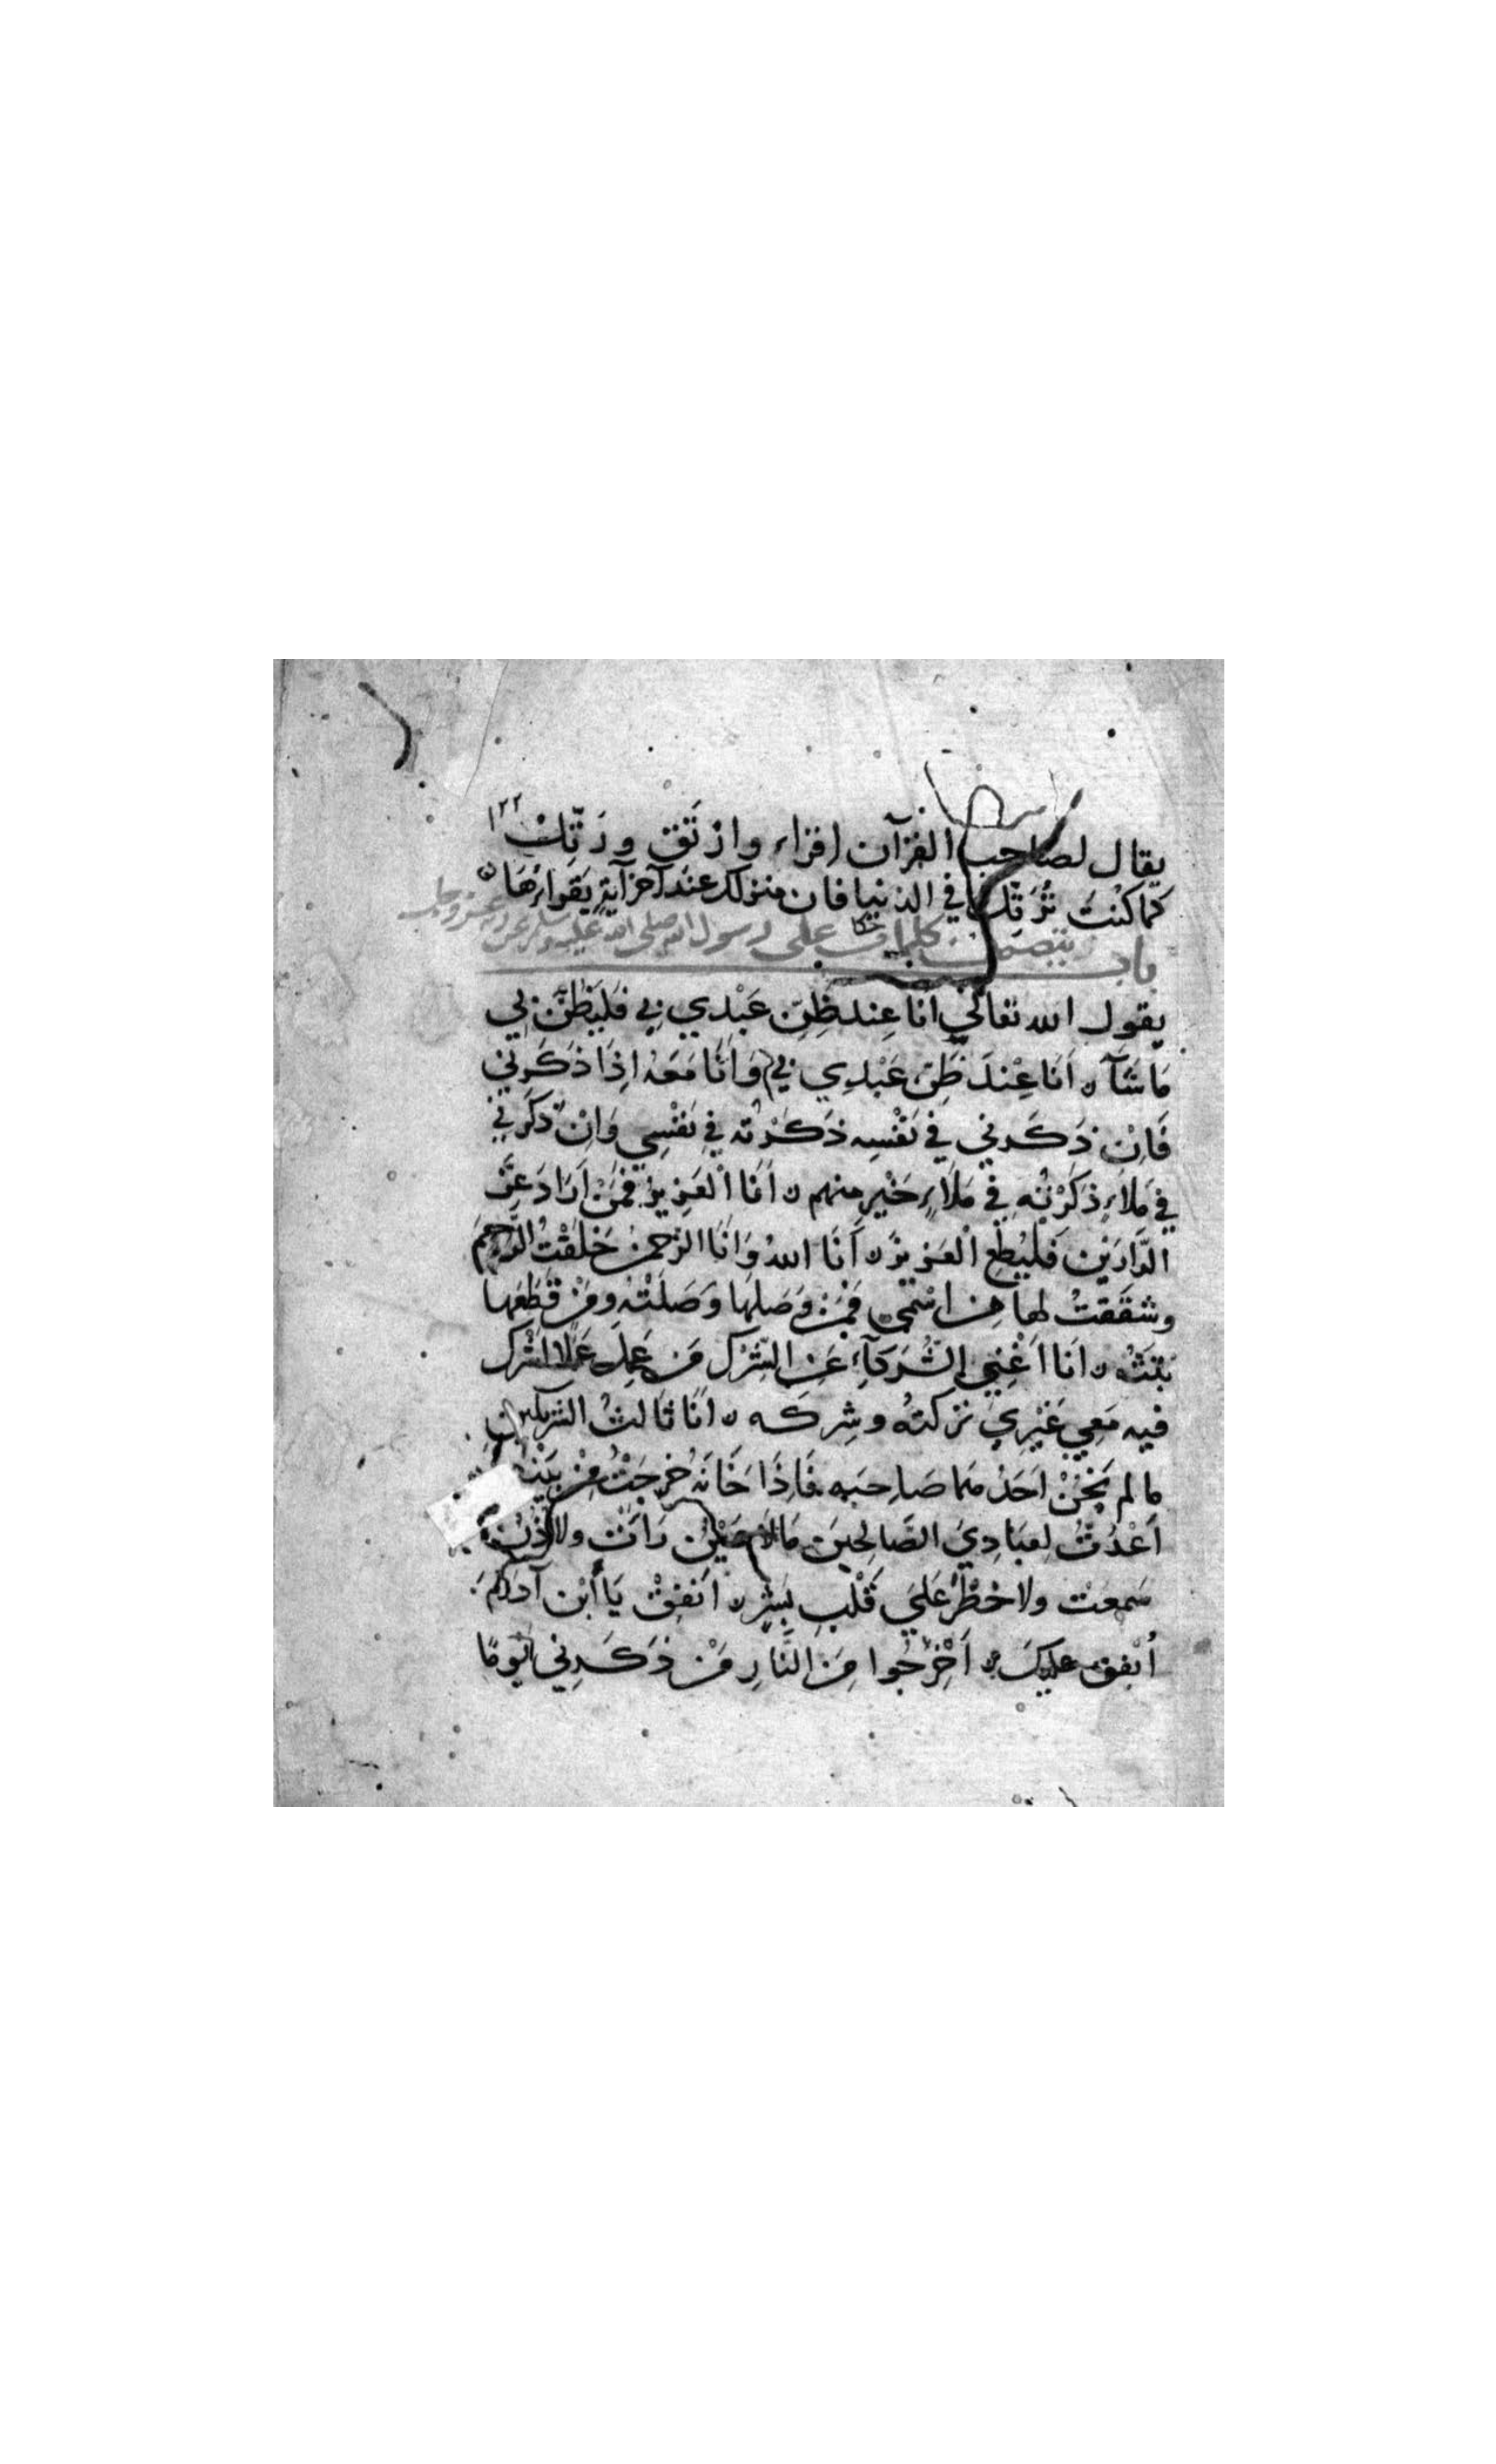 ١٢٢
يقال لصاحب القرآن اقراء وارتق ورتّلْ
كما كنْتَ تُرَتّل في الدنيا فان منزلك عند آخر آيةٍ يقراءُهَا
باب يتضمن كلمات على رسول الله صلى الله عليه وسلم عن عز وجل
يقول الله تعالى انا عِند ظنِّ عَبْدي بي فليَظُنَّ بي
مَا شَآءَ اَنَا عِنْدَ ظَنّ عَبْدِي بي وَاَنَا مَعَهُ اِذَا ذَكَرَنِي
فَاِنْ ذَكَرني في نَفْسِه ذكَرْته في نفْسِي وَاِنْ ذكَرَني
في مَلاءٍ ذكَرْتُه في مَلاءٍ خَيْرٍ منهم اَنَا الْعَزِيز فَمَنْ اَرَادَ عِزَّ
الدَّارَيْنِ فَلْيُطِعِ الْعَزيزَ اَنَا اللهُ وَاَنَا الرَّحمنُ خَلَقْتُ الرَّحِمَ
وشقَقتُ لها مِن اسْمي فَمَنْ وَصَلهَا وَصَلْتُه ومَنْ قطَعَها
بَتتُّه اَنَا اَغْنِي الشُّرَكَآءِ عَنِ الشِّرْكِ مَن عَمِلَ عَمَلًا اشْرك
فيه مَعِي غَيْرِي تركتُه وشِركه انَا ثالثُ الشريكينِ
مالم يَخُنْ اَحَدُهمَا صَاحِبَه فَاِذَا خَانَهُ خرجَتُ مِنْ بيْنهما
اَعْدَدْتُ لِعبَادِيَ الصَّالِحِينَ مَا لا عَيْنٌ رَأتْ ولا اُذُنٌ
سَمِعَت ولا خطَرَ عَلَي قَلْبِ بَشرٍ اَنفِقْ يَا اْبْن آدَمَ
أُنفِق عليكَ اَخْرِجُوا مِنَ النَّارِ مَنْ ذَكَرني يَومًا